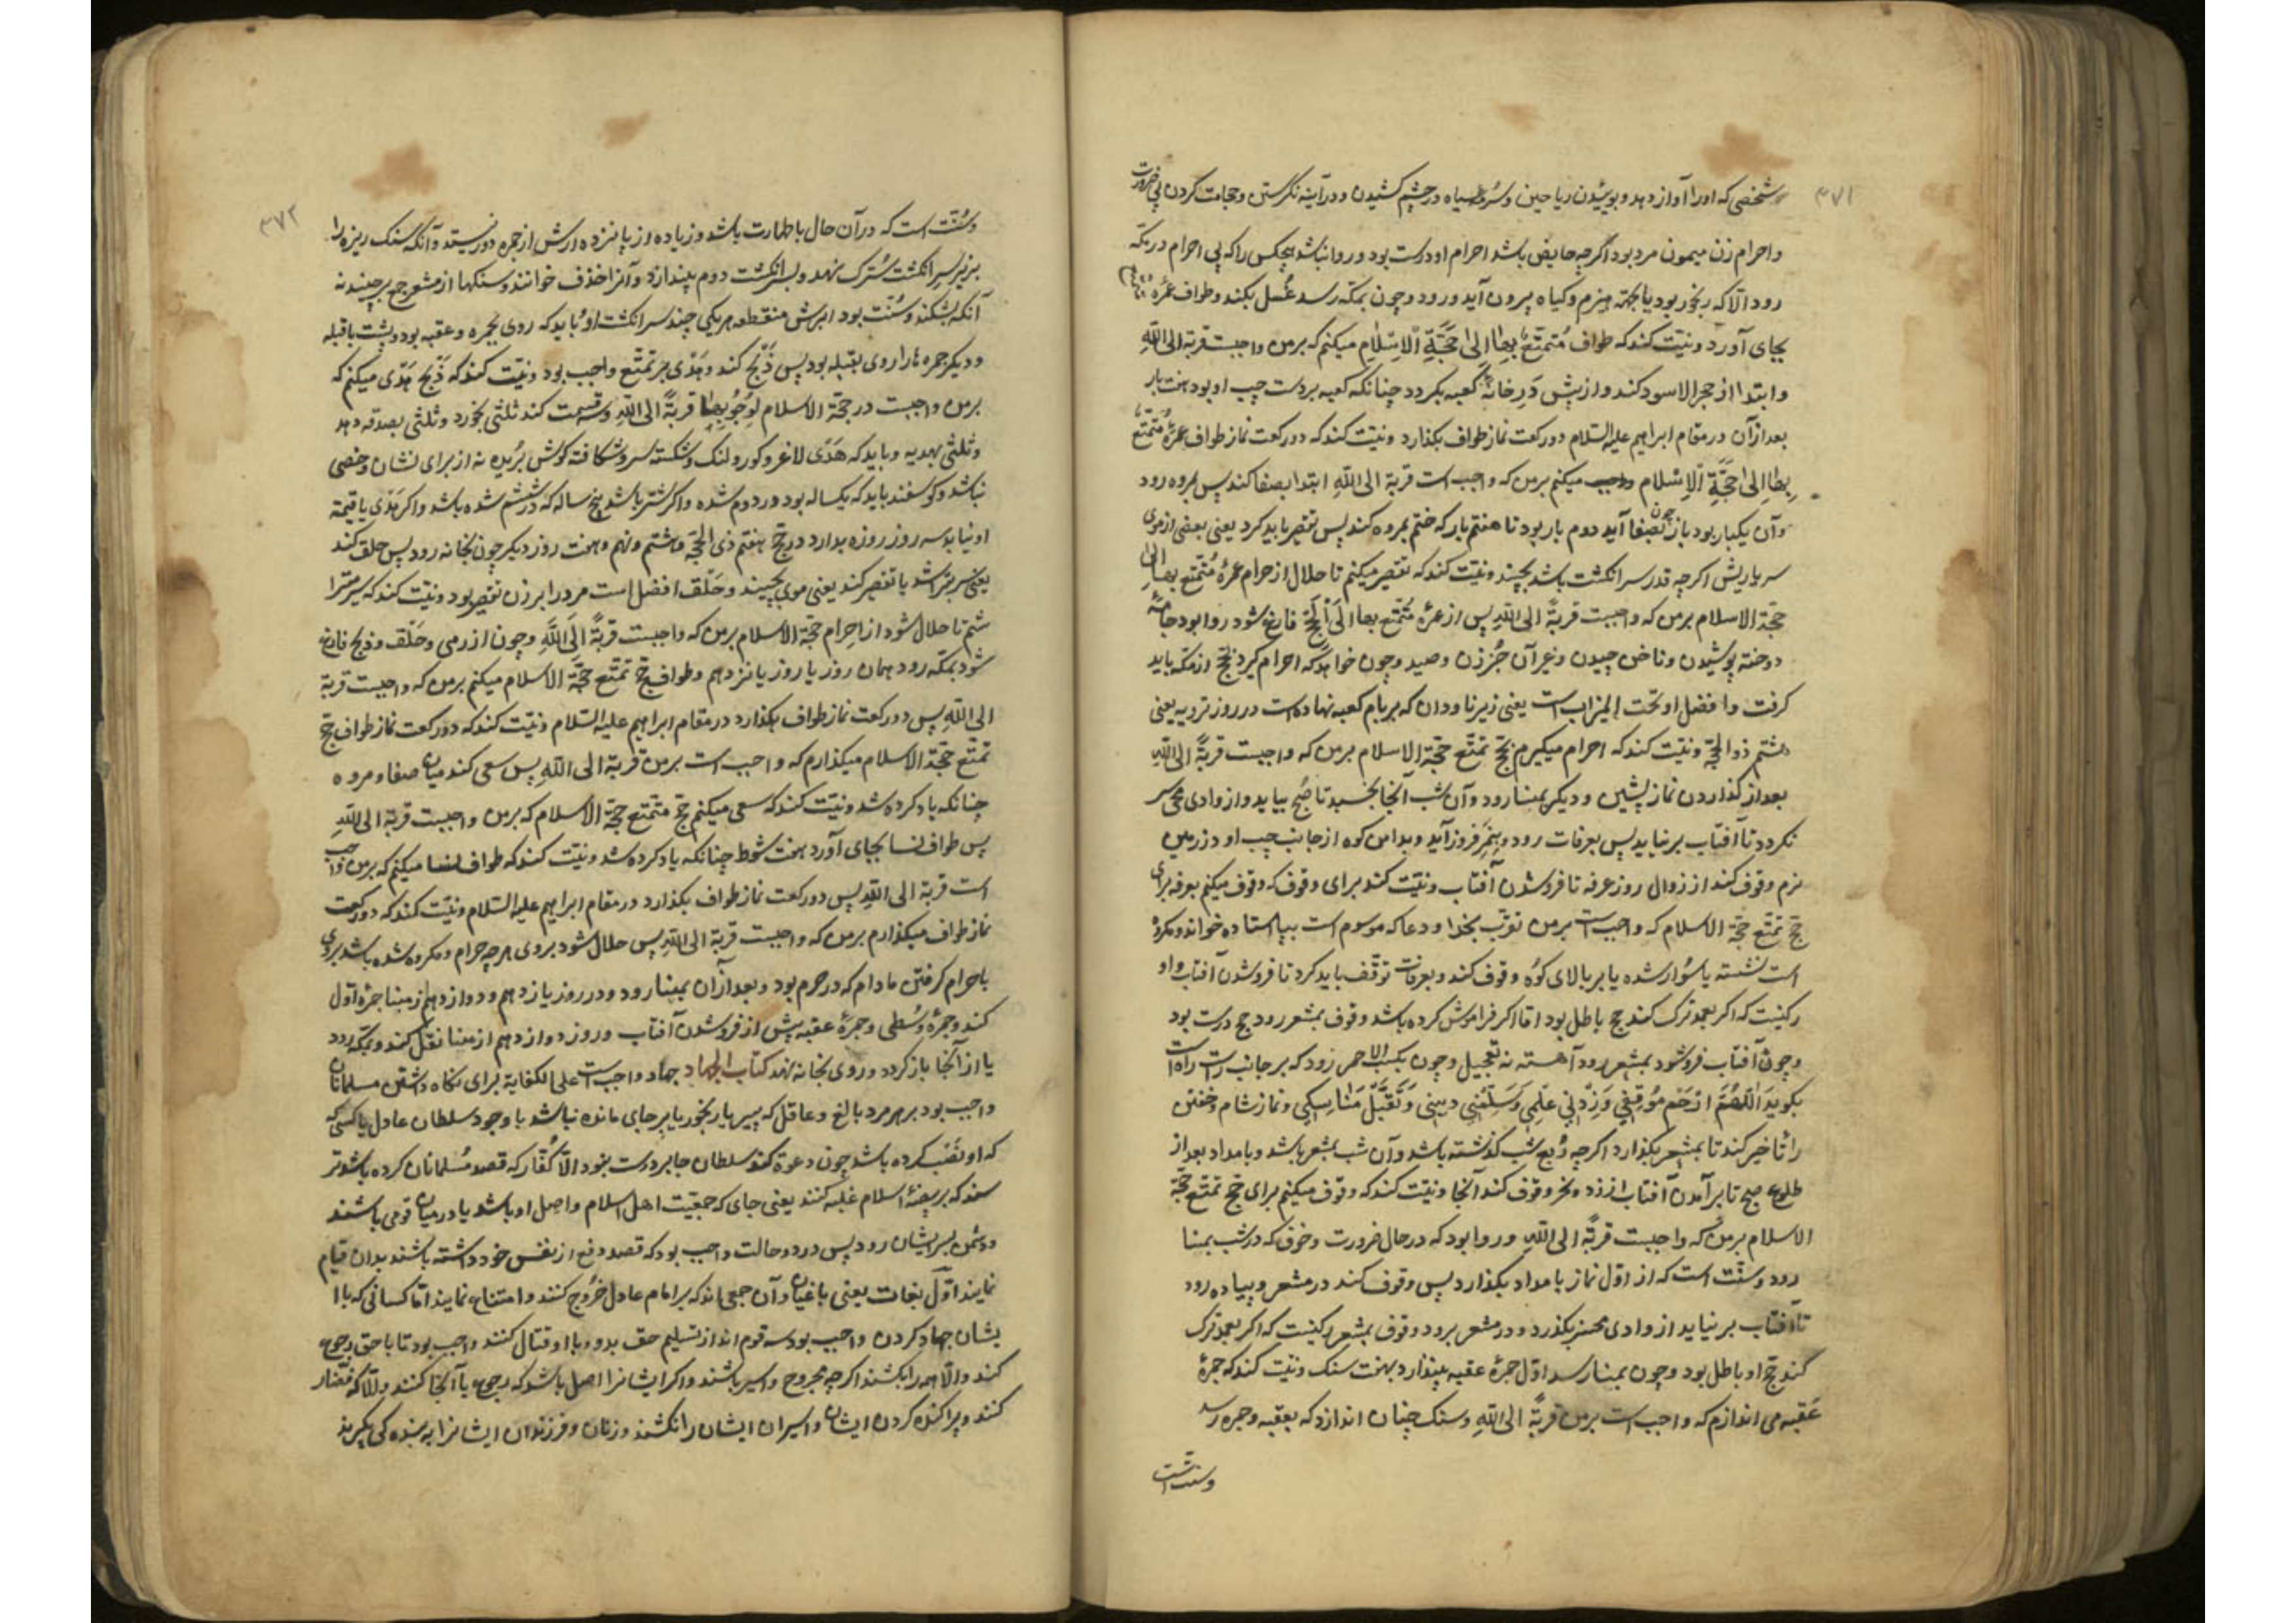 ۳۷۱
شخصی که اورا آواز دهد و بوئیدن ریاحین و سرمه سیاه در چشم کشیدن و در آینه نگرستن و حجامت کردن بی ضرورت
واحرام زن میمون مرد بود اکرچه حایض باشد احرام او درست بود و روا نباشد هیچکس را که بی احرام در مکه
رود الا که رنجور بود یا بجهة هیزم و کیاه بیرون آید و رود و چون بمکه رسد غسل بکند و طواف عمره
بجای آورد ونیت کند که طواف مُتمتع بها اِلیٰ حَجَّةِ الْاِسْلامِ میکنم که برمن واجبست قربة الی الله
وابتدا از حجر الاسود کند و از پیش در خانه کعبه بکردد چنانکه کعبه بردست چپ او بود هفت بار
بعد ازآن درمقام ابراهیم علیه السلام دو رکعت نماز طواف بکذارد ونیت کند که دو رکعت نماز طواف عمرهٔ مُتمتع
بها اِلیٰ حَجَّةِ الْاِسْلام میکنم برمن که واجب است قربة الی الله ابتدا بصفا کند پس بمروه رود
وآن یکبار بود باز چون بصفا آید دوم بار بود تا هفتم بار که ختم بمروه کند پس تقصیر باید کرد یعنی بعضی از موی
سر یا ریش اکرچه قدر سر انکشت باشد بچیند ونیت کند که تقصیر میکنم تا حلال از حرام عمرهٔ مُتمتع بها الی
حجة الاسلام برمن که واجبست قربةً الی الله پس از عمرهٔ مُتمتع بها الی الحج فارغ شود روا بود جامهٔ
دوخته پوشیدن وناخن چیدن وغیر آن جُز زن وصید وچون خواهد که احرام کیرد بحج از مکه باید
کرفت وافضل او تحت المیزاب است یعنی زیر ناودان که بر بام کعبه نهاده است در روز ترویه یعنی
هشتم ذوالحجة ونیت کند که احرام میکیرم بحج تمتع حجة الاسلام برمن که واجبست قربةً الی الله
بعد از کذاردن نماز پیشین و دیکر بمنا رود وآن شب آنجا بخسبد تا صبح بیاید و از وادی محسر
نکردد تا آفتاب برنیاید پس بعرفات رود وبنمره فروز آید وبدامن کوه از جانب چپ او در زمین
نرم وقوف کند از زوال روز عرفه تا فروشدن آفتاب ونیت کند برای وقوف که وقوف میکنم بعرفه برای
حج تمتع حجة الاسلام که واجبست برمن تقرب بخدا و دعا که موسوم است بپا استاده خواند ومکروه
است نشسته یا سوار شده یا بر بالای کوه وقوف کند و بعرفات توقف باید کرد تا فروشدن آفتاب واو
رکنیست که اکر بعمد ترک کند حج باطل بود اما اکر فراموش کرده باشد وقوف بمشعر رود حج درست بود
وچون آفتاب فروشود بمشعر رود آهسته نه بتعجیل وچون بکثیب الاحمر رود که بر جانب راست راه است
بکوید اَللّٰهُمَّ ارْحَم مَوْقِفِي وَزِدْنِي عِلْمِي وَسَلِّمْنِي دِينِي وَتَقَبَّلْ مَنَاسِكِي ونماز شام وخفتن
را تاخیر کند تا بمشعر بکذارد اکرچه رُبع شب کذشته باشد وآن شب بمشعر باشد وبامداد بعد از
طلوع صبح تا برآمدن آفتاب وقوف کند آنجا ونیت کند که وقوف میکنم برای حج تمتع حجة
الاسلام برمن که واجبست قربةً الی الله وروا بود که درحال ضرورت وخوف که درشب بمنا
رود وسنت است که از اول نماز بامداد بکذارد پس وقوف کند در مشعر وپیاده رود
تا آفتاب برنیاید از وادی محسر نکذرد و در مشعر برود وقوف بمشعر رکنیست که اکر بعمد ترک
کند حج او باطل بود وچون بمنا رسد اول جمرهٔ عقبه بیندازد بهفت سنک ونیت کند که جمرهٔ
عَقبه می اندازم که واجب است برمن قربةً الی الله وسنک چنان اندازد که بعقبه وجمره رسد
وسنت است
۳۷۲
وسُنّت است که درآن حال باطهارت باشد وزیاده از پانزده ارش از جمره دور نیستد وآنکه سنک ریزه را
برزبر سر انکشت سُترک نهد وبسر انکشت دوم بیندازد وآنرا خذف خوانند وسنکها از مشعر جمع برچیند نه
آنکه بشکند وسُنّت بود ابرش منقطه هریکی چند سر انکشت او باید که روی بجمره وعقبه بود وپشت باقبله
ودیکر جمره ها را روی بقبله بود پس ذبح کند وهَدْی بر تمتع واجب بود ونیت کند که ذبح هَدْی میکنم که
برمن واجبست در حجة الاسلام لِوُجُوبِها قربةً الی الله وسه قسمت کند ثلثی بخورد وثلثی بصدقه دهد
وثلثی بهدیه وباید که هَدْی لاغر وکور ولنک وشکسته سرو وشکافته کوش بُریده نه از برای نشان وخصی
نباشد وکوسفند باید که یکساله بود ودر دوم شده واکر شتر باشد پنج ساله که در ششم شده باشد واکر هَدْی یا قیمة
او نیابد سه روز روزه بدارد در حج هفتم ذی الحجة وهشتم ونهم وهفت روز دیکر چون بخانه رود پس حلق کند
یعنی سر بتراشد یا تقصیر کند یعنی موی بچیند وحَلق افضل است مرد را بر زن تقصیر بود ونیت کند که سر میترا
شم تا حلال شود از احرام حجة الاسلام برمن که واجبست قربةً اِلَی اللّٰهِ وچون از رمی وحَلق وذبح فارغ
شود بمکه رود همان روز یا روز یازدهم وطواف حج تمتع حجة الاسلام میکنم برمن که واجبست قربة
الی الله پس دو رکعت نماز طواف بکذارد در مقام ابراهیم علیه السلام ونیت کند که دو رکعت نماز طواف حج
تمتع حجة الاسلام میکذارم که واجب است برمن قربة الی الله پس سعی کند میان صفا ومروه
چنانکه یاد کرده شد ونیت کند که سعی میکنم حج متمتع حجة الاسلام که برمن واجبست قربة الی الله
پس طواف نسا بجای آورد هفت شوط چنانکه یاد کرده شد ونیت کند که طواف نسا میکنم که برمن واجب
است قربة الی الله پس دو رکعت نماز طواف بکذارد درمقام ابراهیم علیه السلام ونیت کند که دو رکعت
نماز طواف میکذارم برمن که واجبست قربة الی الله پس حلال شود بروی هرچه حرام ومکروه شده باشد بروی
باحرام کرفتن مادام که در حرم بود وبعد ازآن بمنا رود ودر روز یازدهم ودوازدهم از منا جمرهٔ اول
کند وجمرهٔ وُسْطی وجمرهٔ عقبه پیش از فروشدن آفتاب وروز دوازدهم از منا نقل کند وبمکه رود
یا از آنجا باز کردد وروی بخانه نهد کتاب الجهاد جهاد واجب است علی الکفایه برای نکاه داشتن مسلمانان
واجب بود بر هر مرد بالغ وعاقل که پیر یا رنجور یا برجای مانده نباشد با وجود سلطان عادل یا کسی که
که او نَصَب کرده باشد چون دعوة کند سلطان جابر درست نبود الا کُفّار که قصد مُسلمانان کرده باشد وتر
سند که بر بیضهٔ اسلام غلبه کنند یعنی جای که جمعیت اهل اسلام واصل او باشد یا در میان قومی باشند
ودشمن بسر ایشان رود پس در دو حالت واجب بود که قصد دفع از نفس خود داشته باشند بدان قیام
نمایند اول بغات یعنی باغیان وآن جمعی اند که بر امام عادل خُروج کنند وامتناع نمایند اما کسانی که با ا
یشان جهاد کردن واجب بود سه قوم اند از تسلیم حق بدو وبا او قتال کنند واجب بود تا باحق رجوع
کنند والا همه را بکشند اکرچه مجروح واسیر باشند واکر ایشانرا اصل باشد که رجوع با آنجا کنند
کنند وپراکنده کردن ایشان واسیران ایشان را نکشند وزنان وفرزندان ایشانرا به بنده کی بکیرند